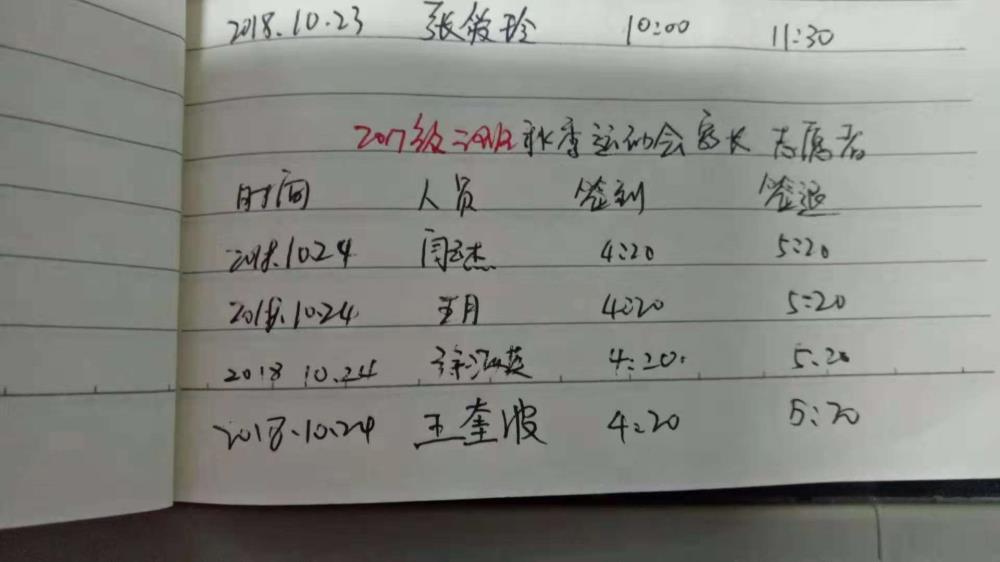 2018.10.23 张筱玲 10:00 11:30
2017级二班秋季运动会家长志愿者
时间 人员 签到 签退
2018.10.24 闫云杰 4:20 5:20
2018.10.24 王月 4:20 5:20
2018 10.24 徐 英 4:20. 5:20
2018.10.24 王奎波 4:20 5:20